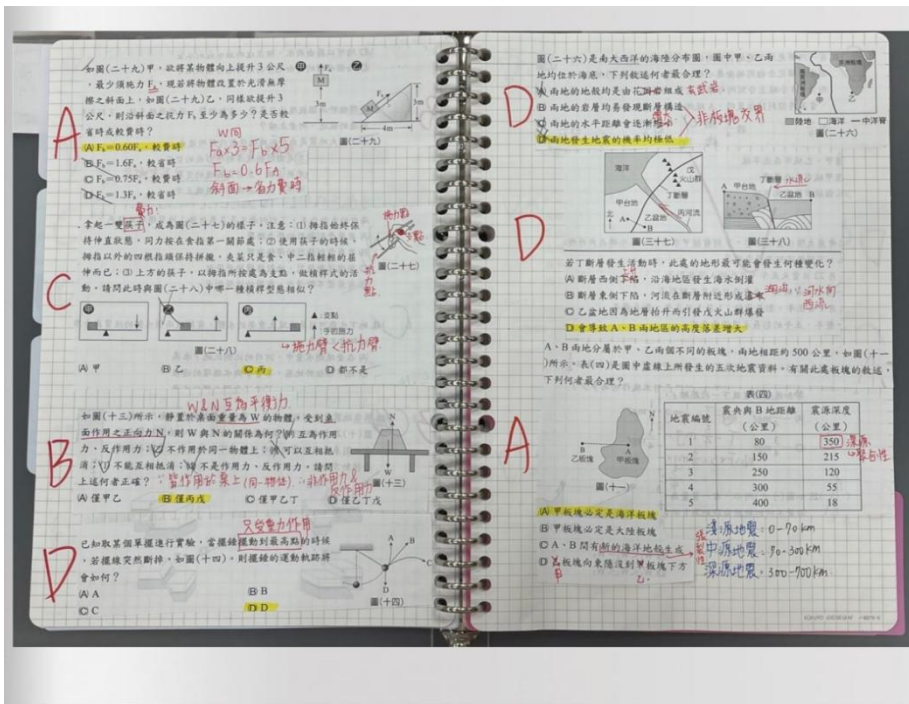 A
如圖(二十九)甲，欲將某物體向上提升3公尺
，最少須施力Fa。現若將物體改置於光滑無摩
擦之斜面上，如圖(二十九)乙，同樣欲提升3
公尺，則沿斜面之抗力Fb至少為多少？是否較
省時或較費時？
(A) Fb=0.60Fa，較費時
(B) Fb=1.6Fa，較省時
(C) Fb=0.75Fa，較費時
(D) Fb=1.3Fa，較省時
W同
Fa×3=Fb×5
Fb=0.6FA
斜面→省力費時
甲
Fa
M
3m
乙
Fb
M
3m
4m
圖(二十九)
C
費力
拿起一雙筷子，成為圖(二十七)的樣子。注意：(1)拇指始終保
持伸直狀態，同力按在食指第一關節處；(2)使用筷子的時候，
拇指以外的四根指頭保持拼攏，夾菜只是食、中二指輕輕的屈
伸而已；(3)上方的筷子，以拇指所按處為支點，做槓桿式的活
動。請問此時與圖(二十八)中哪一種槓桿型態相似？
施力點
支點
抗力點
圖(二十七)
甲
乙
丙
▲：支點
↓：手的施力
圖(二十八)
→施力臂<抗力臂
(A) 甲
(B) 乙
(C) 丙
(D) 都不是
B
W&N互為平衡力
如圖(十三)所示，靜置於桌面重量為W的物體，受到桌
面作用之正向力N，則W與N的關係為何？(甲)互為作用
力、反作用力；(乙)不作用於同一物體上；(丙)可以互相抵
消；(丁)不能互相抵消；(戊)不是作用力、反作用力。請問
上述何者正確？
∵皆作用於桌上(同一物体)∴非作用力&
反作用力
(A) 僅甲乙
(B) 僅丙戊
(C) 僅甲乙丁
(D) 僅乙丁戊
N
W
圖(十三)
D
只受重力作用
已知取某個單擺進行實驗，當擺錘擺動到最高點的時候
，若擺線突然斷掉，如圖(十四)。則擺錘的運動軌跡將
會如何？
(A) A
(B) B
(C) C
(D) D
A
B
C
D
圖(十四)
D
圖(二十六)是南大西洋的海陸分布圖，圖中甲、乙兩
地均位於海底，下列敘述何者最合理？
(A) 兩地的地殼均是由花岡岩組成
玄武岩
(B) 兩地的岩層均易發現斷層構造
(C) 兩地的水平距離會逐漸
(D) 兩地發生地震的機率均極低
非板塊交界
甲
乙
陸地
海洋
中洋脊
圖(二十六)
D
海洋
戊
火山群
丁斷層
甲台地
乙盆地
丙河流
北
A
B
圖(三十七)
A
甲台地
丁斷層
乙盆地
B
圖(三十八)
若丁斷層發生活動時，此處的地形最可能會發生何種變化？
(A) 斷層西側下陷，沿海地區發生海水倒灌
上升
(B) 斷層東側下陷，河流在斷層附近形成
(C) 乙盆地因為地層抬升而引發戊火山群爆發
(D) 會導致A、B兩地區的高度落差增大
A
A、B兩地分屬於甲、乙兩個不同的板塊，兩地相距約500公里，如圖(十一
)所示。表(四)是圖中虛線上所發生的五次地震資料，有關此處板塊的敘述，
下列何者最合理？
N
B
A
乙板塊
甲板塊
圖(十一)
表(四)
地震編號 震央與B地距離（公里） 震源深度（公里）
1 80 350
2 150 215
3 250 120
4 300 55
5 400 18
深源
↳聚合性
(A) 甲板塊必定是海洋板塊
(B) 甲板塊必定是大陸板塊
(C) A、B間有新的海洋地殼生成
(D) 乙板塊向東隱沒到甲板塊下方
甲
乙
淺源地震：0-70km
中源地震：70-300km
深源地震：300-700km